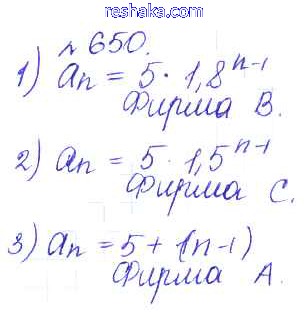 reshaka.com
№ 650.
1) aₙ = 5 · 1,8ⁿ⁻¹
Фирма В.
2) aₙ = 5 · 1,5ⁿ⁻¹
Фирма С.
3) aₙ = 5 + (n-1)
Фирма А.